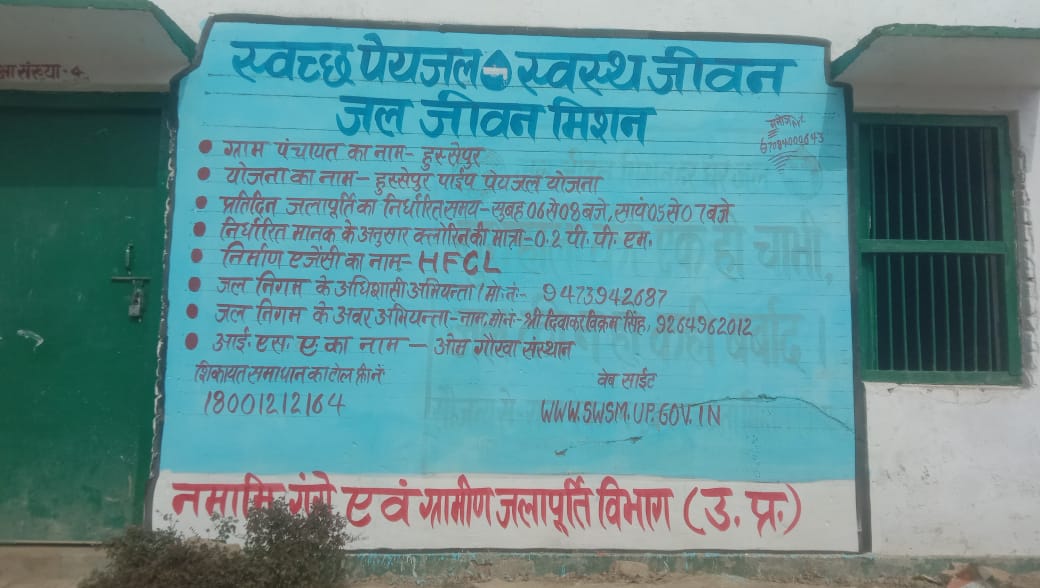 स्वच्छ पेयजल स्वस्थ जीवन
जल जीवन मिशन
ग्राम पंचायत का नाम- हुस्सेपुर
योजना का नाम- हुस्सेपुर पाईप पेयजल योजना
प्रतिदिन जलापूर्ति का निर्धारित समय- सुबह 06 से 08 बजे, सायं 05 से 07 बजे
निर्धारित मानक के अनुसार क्लोरिन की मात्रा- 0.2 पी. पी. एम.
निर्माण एजेंसी का नाम- HFCL
जल निगम के अधिशासी अभियन्ता / मो. नं- 9473942687
जल निगम के अवर अभियन्ता- नाम, मो.नं- श्री दिवाकर विक्रम सिंह, 9264962012
आई. एस. ए का नाम - ओम गौरवा संस्थान
शिकायत समापान का टोल फ्री नं
18001212164
वेब साईट
WWW.SWSM.UP.GOV.IN
नमामि गंगे एवं ग्रामीण जलापूर्ति विभाग (उ. प्र.)
संख्या- 4